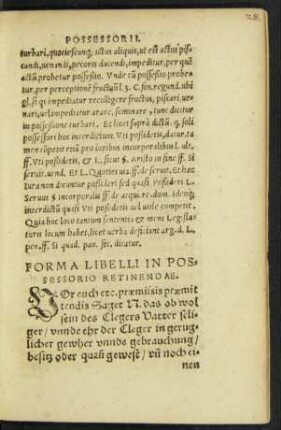 28.
POSSESSORII.
turbari, quotiescunq; actus aliquis, ut est actus pis-
candi, uenandi, pecoris ducendi, impeditur, per quē
actū probetur possessio. Vnde cū possessio probe-
tur, per perceptionē fructuū l. 3. C. fin. regund. ubi
gl. si qs impediatur recolligere fructus, piscari, ue-
nari, uel impediatur arare, seminare, tunc dicitur
in possessione turbari. Et licet suprà dictū q, soli
possessori hoc interdictum Vti possidetis, datur, ta-
men cōpetit etiā pro iuribus incorporalibus l. ult.
ff. Vti possidetis, & L. sicut §. Aristo in fine ff. Si
seruit. uend. Et L. Quoties uia. ff. de seruit. Et hæc
iura non dicuntur possideri sed quasi possideri L.
Seruus § incorporalū ff. de acqui. re. dom. ideoq;
interdictū quasi Vti possidetis uel utile competit.
Quia hoc loco tantum sententia & mens Legisla-
toris locum habet, licet uerba deficiant arg. d. L.
pen. ff. Si quad. pau. fec. dicatur.
FORMA LIBELLI IN POS-
SESSORIO RETINENDAE.
VOr euch etc. præmissis præmit
tendis Saget N. das ob wol
sein des Clegers Vatter seli-
ger / vnnd ehr der Cleger in gerug-
licher gewher vnnd gebrauchung /
besitz oder quasi gewest / vñ noch ei-
nen